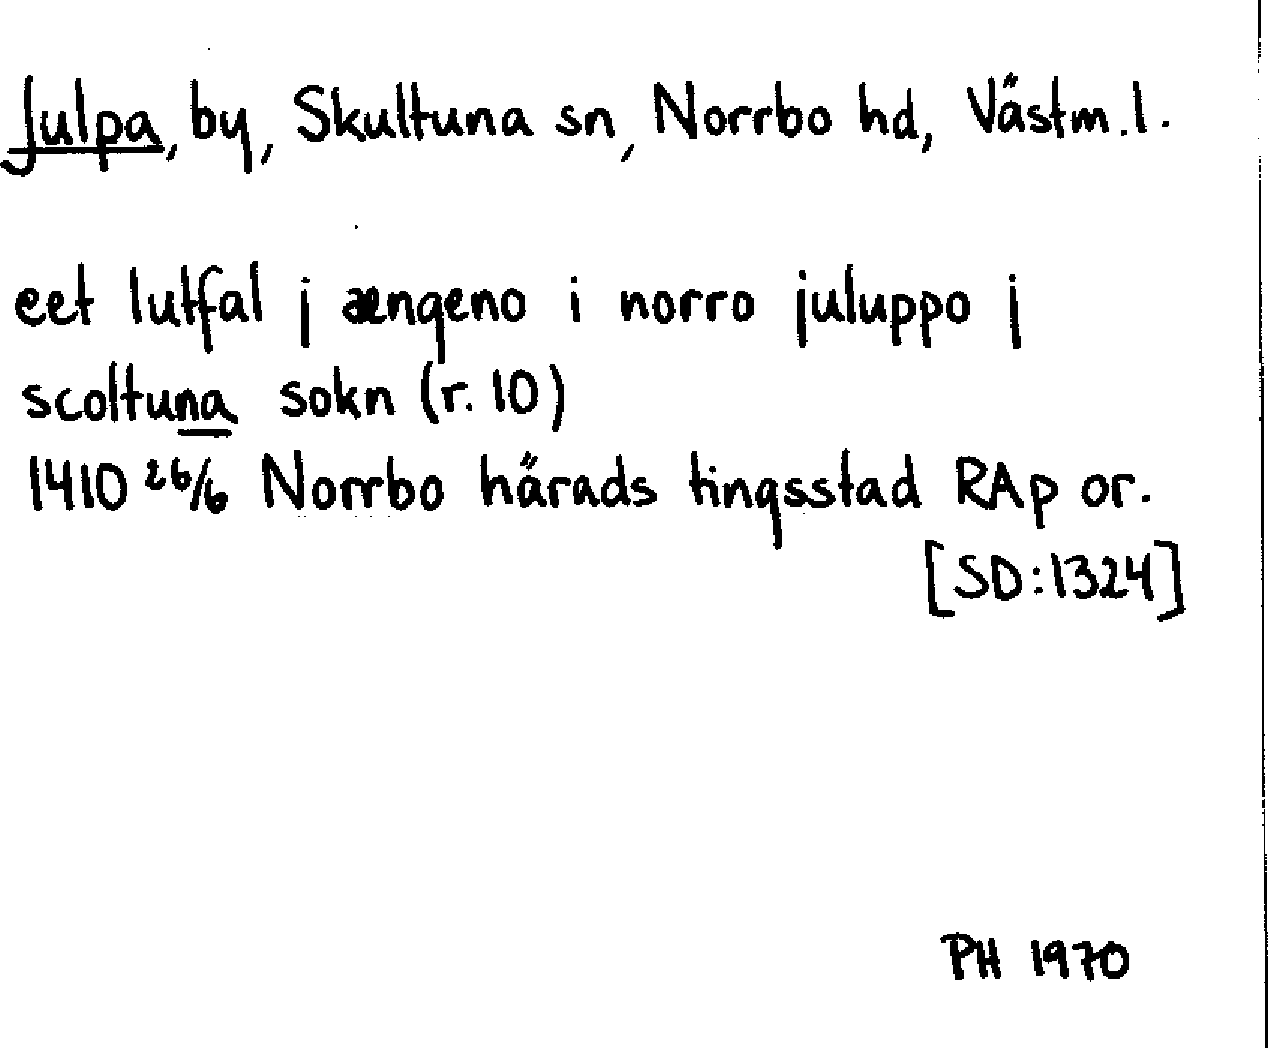 Julpa, by, Skultuna sn, Norrbo hd, Västm. l.
eet lutfal j ængeno i norro juluppo j
scoltuna sokn (r. 10)
1410 26/6 Norrbo härads tingsstad RAp or.
[SD:1324]
PH 1970